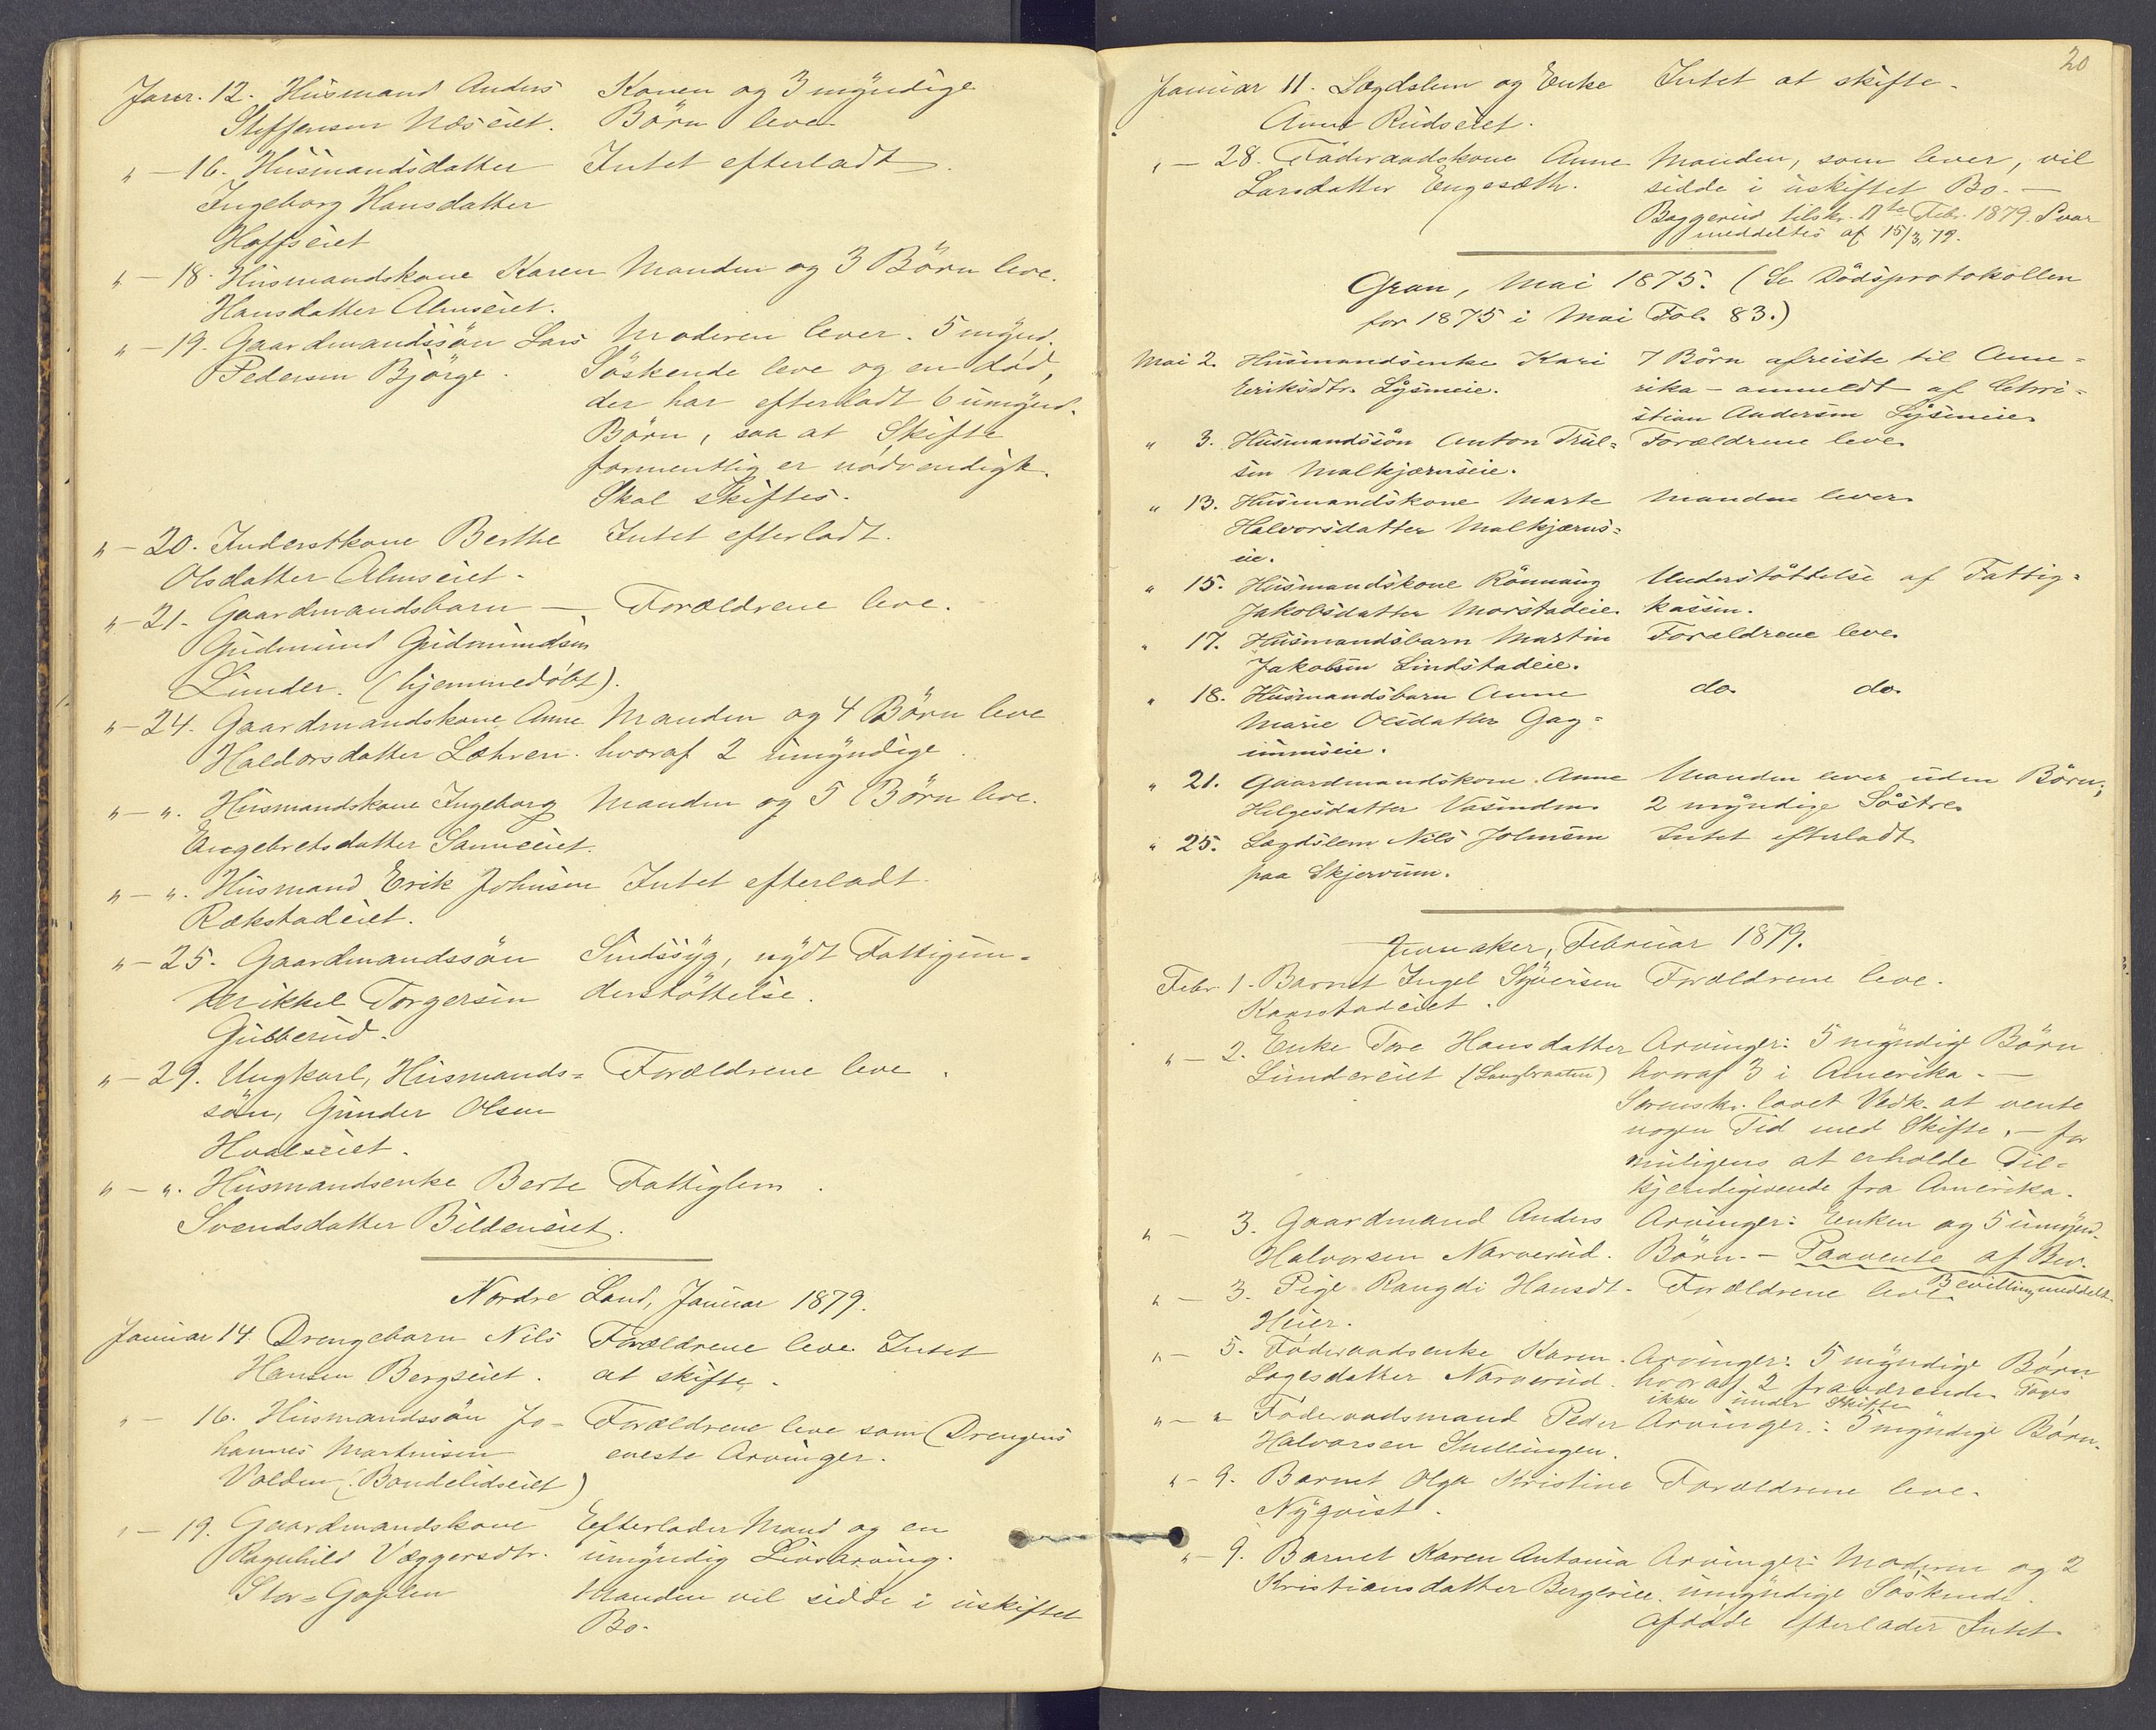 Januar. 12. Husmand Anders Konen og 3 myndige
Steffensen Næseiet. Börn leve
" — 16. Husmandsdatter Intet efterladt.
Ingeborg Hansdatter
Hoffseiet
" — 18. Husmandskone Karen Manden og 3 Börn leve.
Hansdatter Almseiet.
" — 19. Gaardmandssön Lars Moderen lever. 5 mynd.
Pedersen Björge. Söskende leve og en död,
der har efterladt 6 umynd.
Börn, saa at Skifte
formentlig er nödvendigt.
Skal skiftes.
" — 20. Inderstkone Berthe Intet efterladt.
Olsdatter Almseiet.
" — 21. Gaardmandsbarn — Forældrene leve.
Gudmund Gudmundsen
Lunder. (hjemmedöbt).
" — 24. Gaardmandskone Anne Manden og 4 Börn leve
Haldorsdatter Læhren. hvoraf 2 umyndige.
" — ". Husmandskone Ingeborg Manden og 5 Börn leve.
Engebretsdatter Sanneeiet.
" — ". Husmand Erik Johnsen Intet efterladt.
Rækstadeiet.
" — 25. Gaardmandssön Sindssyg, nydt Fattigun-
Mikkel Torgersen derstöttelse.
Gubberud.
" — 29. Ungkarl, Husmands= Forældrene leve.
sön, Gunder Olsen
Hvalseiet.
" — ". Husmandsenke Berte Fattiglem.
Svendsdatter Bildeneiet.
Nordre Land, Januar 1879.
Januar 14. Drengebarn Nils Forældrene leve Intet
Hansen Bergseiet. at skifte.
" — 16. Husmandssön Jo= Forældrene leve som Drengens
hannes Martinisen eneste Arvinger.
Volden (Baadelidseiet)
" — 19. Gaardmandskone Efterlader Mand og en
Ragnhild Væggersdtr. umyndig Livsarving.
Stor=Gaplen Manden vil sidde i uskiftet
Bo.
20
Januar 11. Lægdslem og Enke Intet at skifte.
Anne Rudseiet.
" — 28. Föderaadskone Anne Manden, som lever, vil
Larsdatter Engesæth. sidde i uskiftet Bo. —
Baggerud tilskr. 11te Febr. 1879. Svar
meddeltes af 15/3 79.
Gran, Mai 1875. (Se Dödsprotokollen
for 1875 i Mai Fol. 83.)
Mai 2. Husmandsenke Kari 7 Börn afreiste til Ame=
Eriksdtr. Lysmeie. rika — anmeldt af Chri=
stian Andersen Lysmeie.
" 3. Husmandssön Anton Trul= Forældrene leve.
sen Malkjærnseie.
" 13. Husmandskone Marte Manden lever.
Halvorsdatter Malkjærns=
eie.
" 15. Husmandskone Rönnaug Understöttelse af Fattig=
Jakobsdatter Morstadeie. kassen.
" 17. Husmandsbarn Martin Forældrene leve.
Jakobsen Lindstadeie.
" 18. Husmandsbarn Anne do. do.
Marie Olsdatter Gag=
eie.
" 21. Gaardmandskone Anne Manden lever uden Börn;
Helgesdatter Vasenden. 2 myndige Söstre.
" 25. Lægdslem Nils Johnsen Intet efterladt
paa Skjervum.
Jevnaker, Februar 1879.
Febr. 1. Barnet Ingel Syversen Forældrene leve.
Kaarstadeiet.
" — 2. Enke Tore Hansdatter Arvinger: 5 myndige Börn
Lundereiet (Langbraaten) hvoraf 3 i Amerika. —
Sörenskr. lovet Vedk. at vente
nogen Tid med Skifte, — for
muligens at erholde Til=
kjendegivende fra Amerika.
" — 3. Gaardmand Anders Arvinger: Enken og 5 umynd.
Halvorsen Narverud. Börn. — Paavente af Bev.
Bevilling meddelt.
" — 3. Pige Rangdi Hansdt. Forældrene leve.
Heier.
" — 5. Föderaadsenke Karen Arvinger: 5 myndige Börn
Lagesdatter Narverud. hvoraf 2 fraværende Tages
ikke under Skifte
" — " Föderaadsmand Peder Arvinger: 5 myndige Börn.
Halvorsen Snellingen.
" — 9. Barnet Olga Kristine Forældrene leve.
Nyqvist.
" — 9. Barnet Karen Antonia Arvinger: Moderen og 2
Kristiansdatter Bergereie. umyndige Söskende.
Afdöde efterlader Intet.